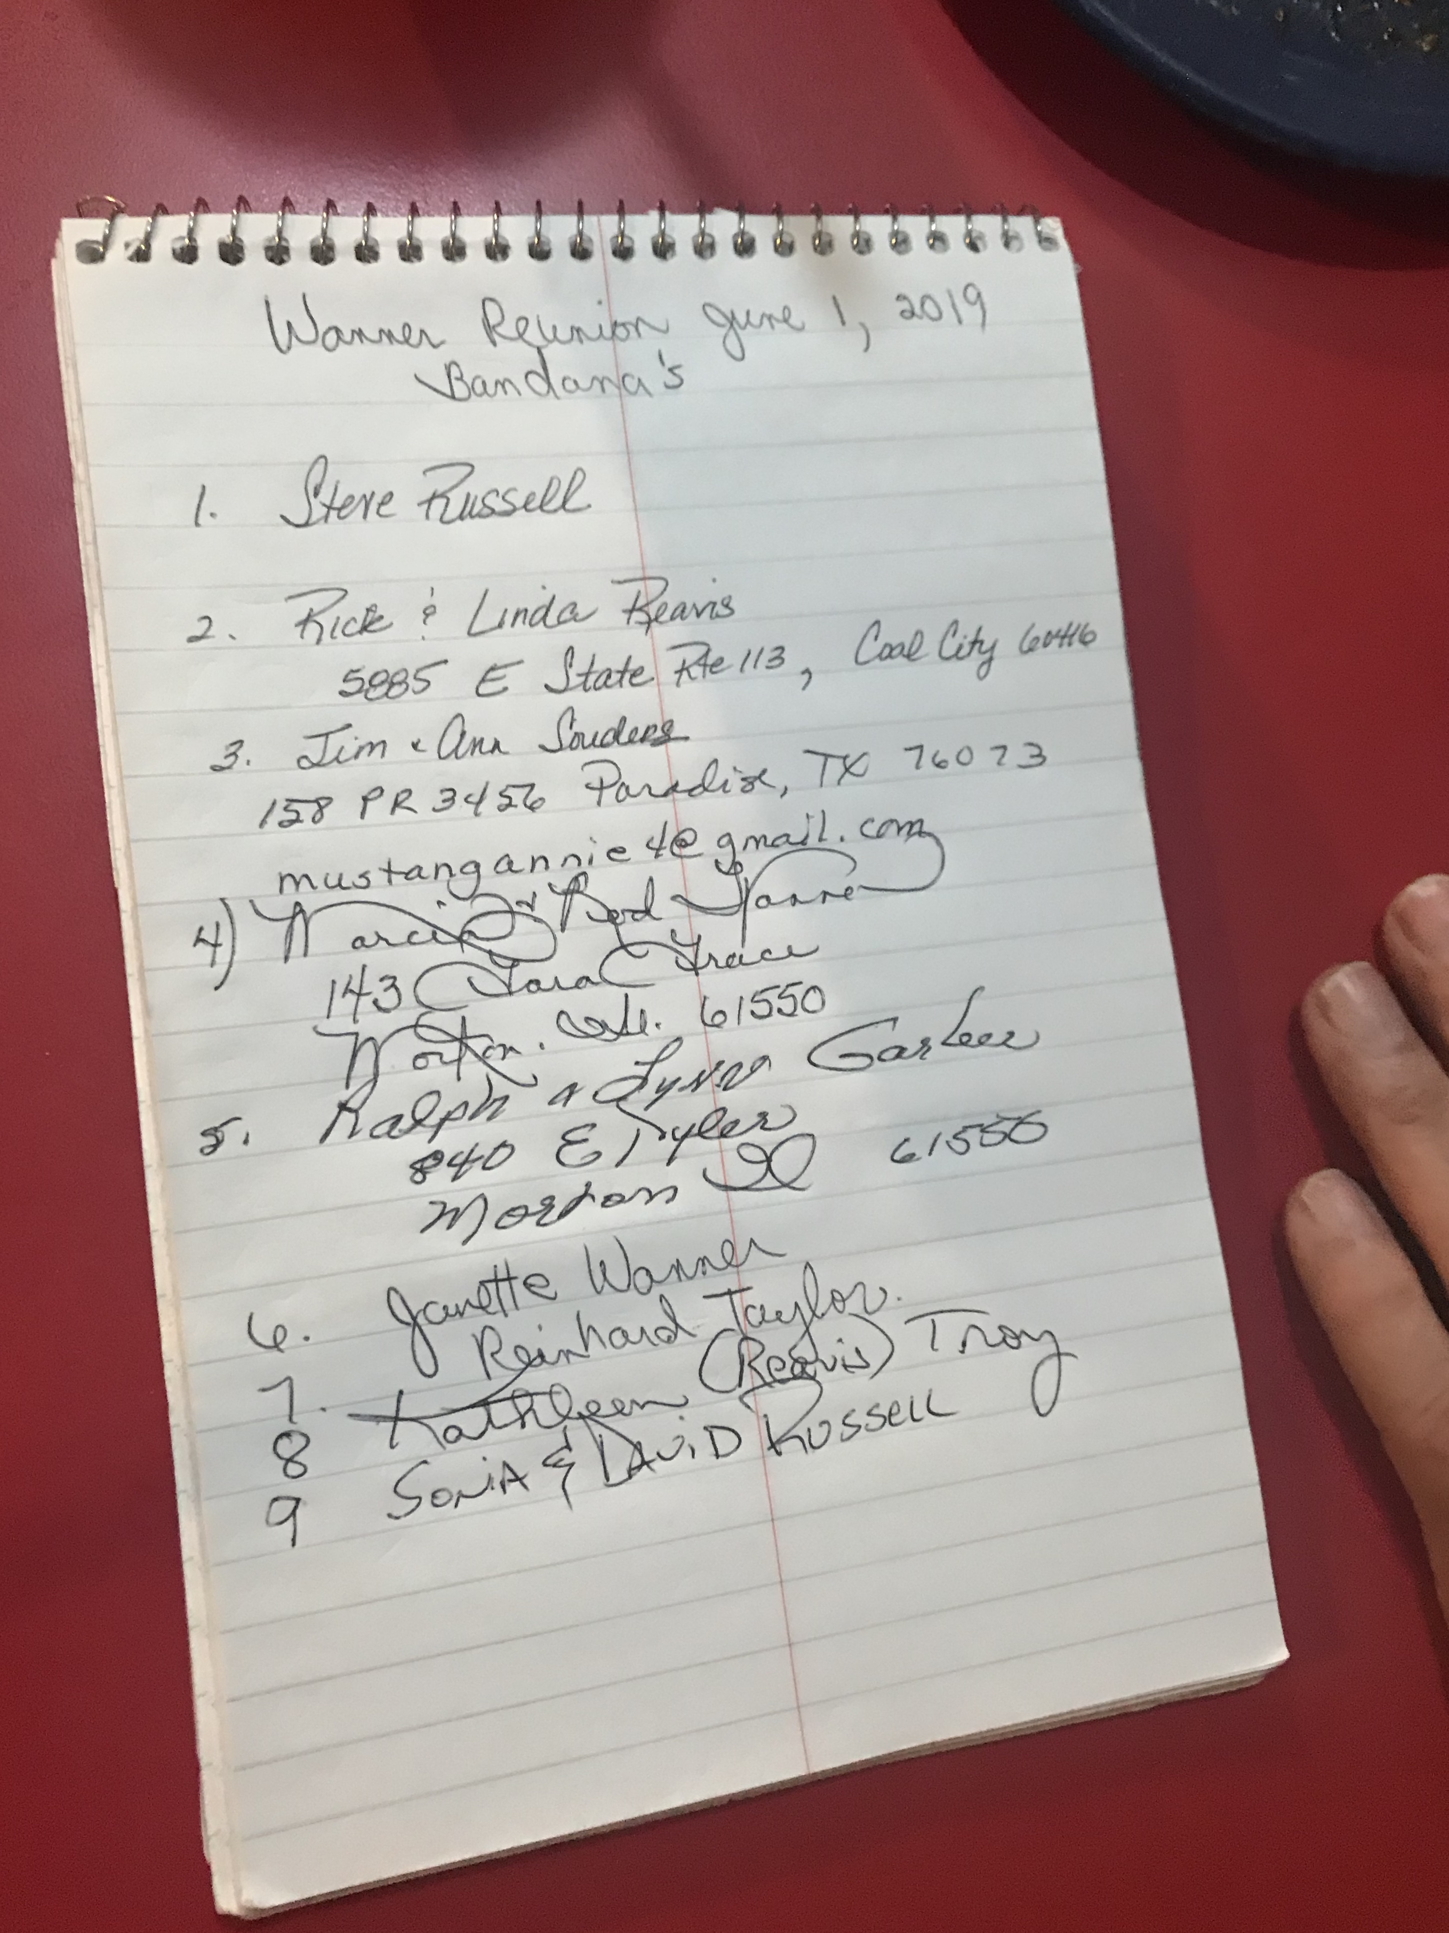 Wanner Reunion June 1, 2019
Bandana's
1. Steve Russell
2. Rick & Linda Reavis
5885 E State Rte 113, Coal City 60416
3. Jim & Ann Souders
158 PR 3456 Paradise, TX 76073
mustangannie4@gmail.com
4) Marcia & Rod Wanner
143 Tara Trace
Morton. Ill. 61550
5. Ralph & Lynn Garber
840 E Tyler
Morton Il 61550
6. Janette Wanner
7. Reinhard Taylor.
8 Kathleen (Reavis) Troy
9 Sonia & David Russell